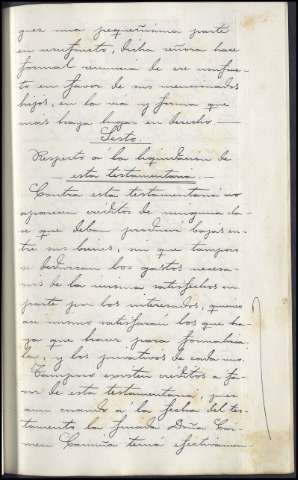 que una pequeñisima parte
en usufructo, dicha señora hace
formal renuncia de ese usufruc-
to en favor de sus mencionados
hijos, en la via y forma que
mas haya lugar en derecho.
Sexto.
Respecto á la liquidacion de
esta testamentaria.
Contra esta testamentaria no
aparecen créditos de ninguna cla-
se que deban producir bajas en-
tre sus bienes, ni que tampoco
se deduzcan los gastos necesa-
rios de la misma satisfechos en
parte por los interesados, quienes
asi mismo satisfaran los que ha-
ya que hacer para formalizar-
la, y los privativos de cada uno.
Tampoco existen créditos a fa-
vor de esta testamentaria, pues
aun cuando á la fecha del tes-
tamento, la finada Doña Car-
men tenia efectivamen-